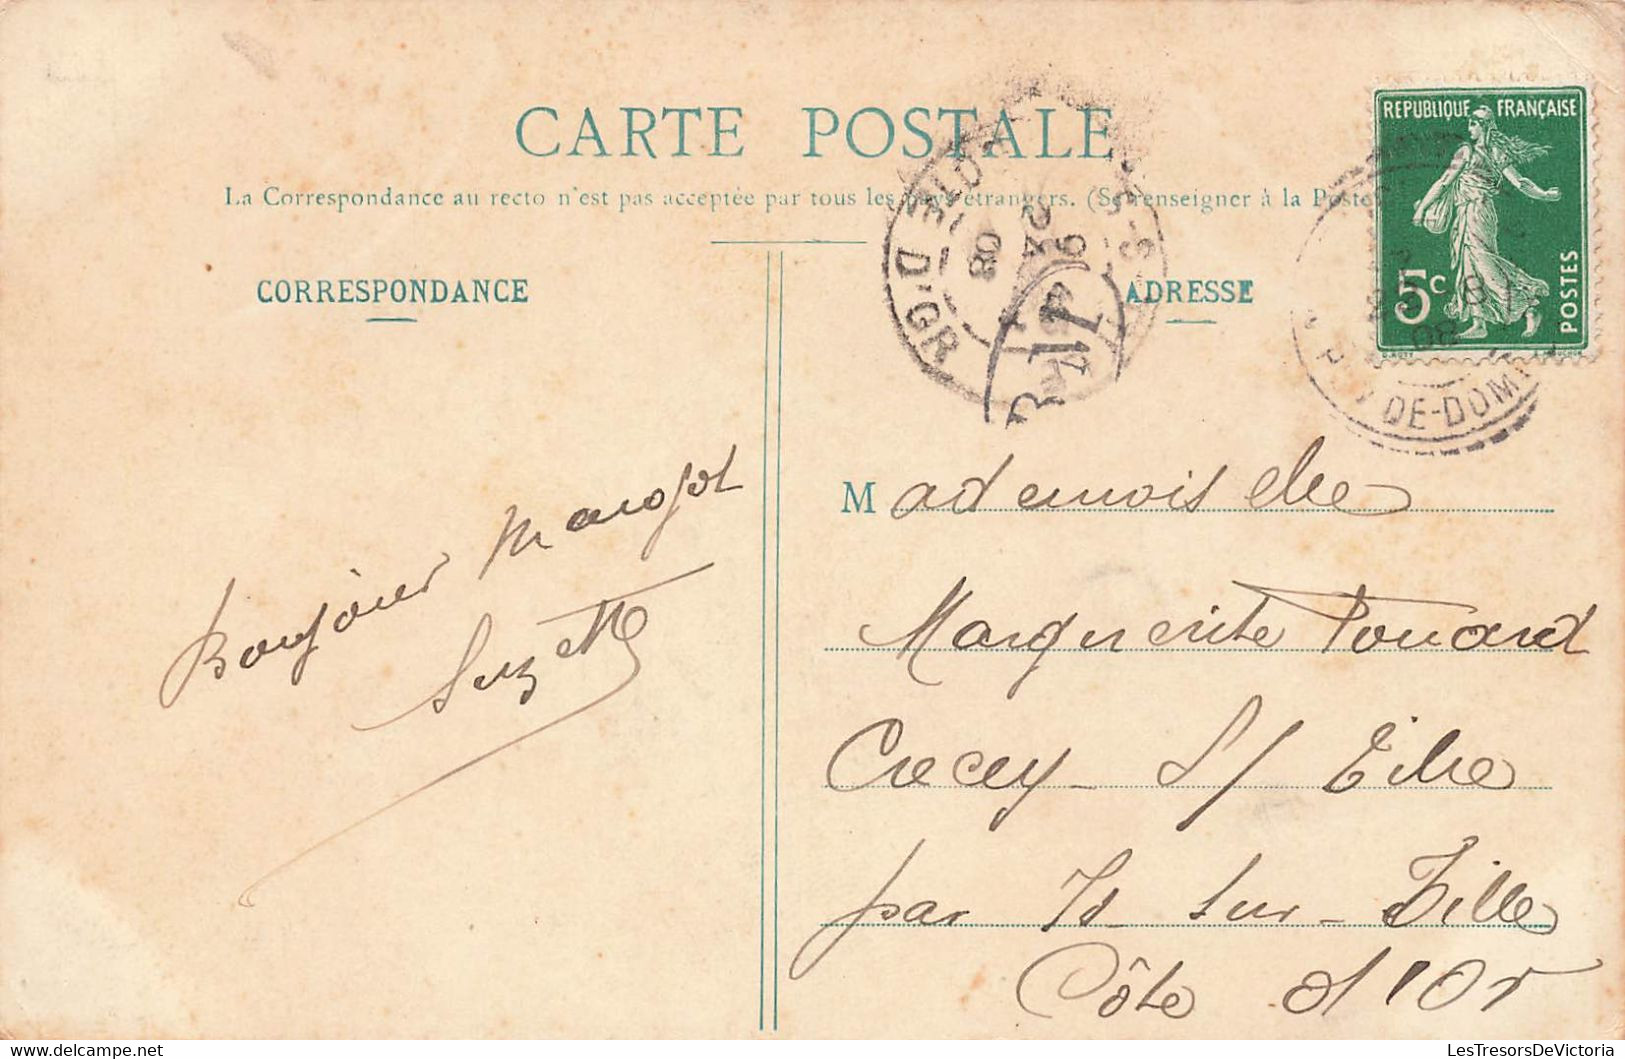 CARTE POSTALE
La Correspondance au recto n'est pas acceptée par tous les pays étrangers. (Se renseigner à la Poste
CORRESPONDANCE
ADRESSE
REPUBLIQUE FRANÇAISE
5c
POSTES
O. ROTY
08
24
9
D'OR
DE-DOME
08
Bonjour Margot
Suzette
Mademoiselle
Marguerite Pouard
Crecey S/ Tille
par Is sur-Tille
Côte d'Or
LesTresorsDeVictoria